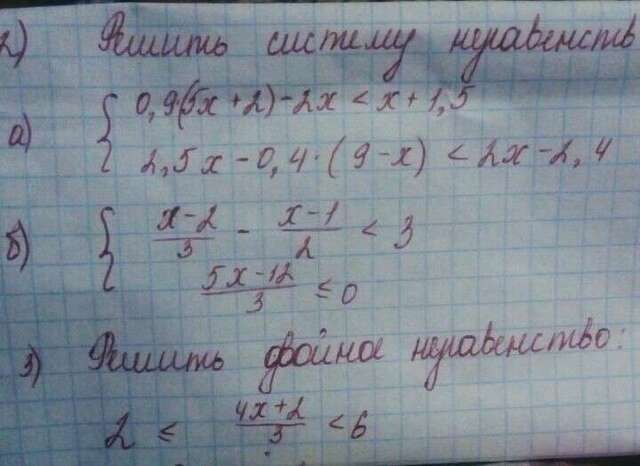 2) Решить систему неравенств
а) { 0,9(5x+2)-2x < x+1,5
2,5x-0,4·(9-x) < 2x-2,4
б) { x-2/3 - x-1/2 < 3
5x-12/3 ≤ 0
3) Решить двойное неравенство:
2 ≤ 4x+2/3 < 6